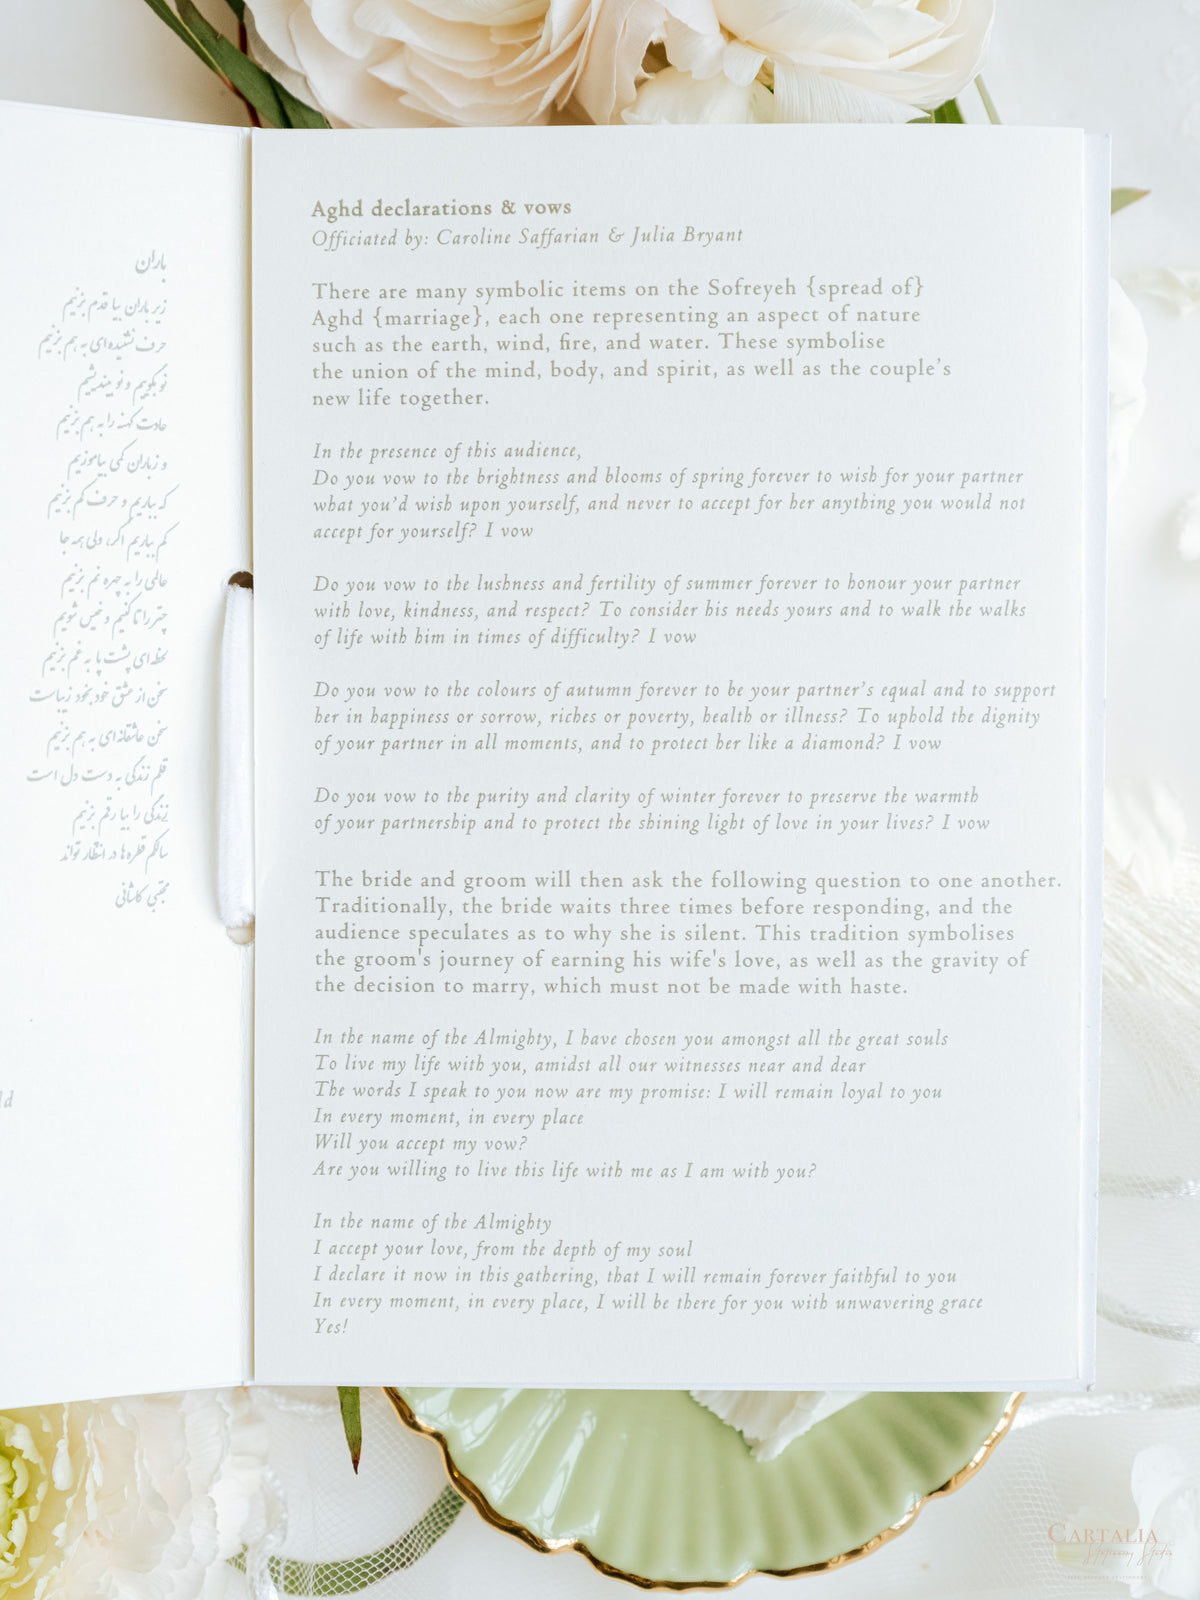 باران
زیر باران بیا قدم بزنیم
حرف نشنیده‌ای به هم بزنیم
نو بگوییم و نو بیندیشیم
عادت کهنه را به هم بزنیم
و ز باران کمی بیاموزیم
که بباریم و حرف کم بزنیم
کم بباریم اگر، ولی همه جا
عالمی را به چهره نم بزنیم
چتر را تا کنیم و خیس شویم
لحظه‌ای پشت پا به غم بزنیم
سخن از عشق خود بخود زیباست
سخن عاشقانه‌ای به هم بزنیم
قلم زندگی به دست دل است
زندگی را بیا رقم بزنیم
سالکم قطره‌ها در انتظار تواند
مجتبی کاشانی
ld
Aghd declarations & vows
Officiated by: Caroline Saffarian & Julia Bryant
There are many symbolic items on the Sofreyeh {spread of}
Aghd {marriage}, each one representing an aspect of nature
such as the earth, wind, fire, and water. These symbolise
the union of the mind, body, and spirit, as well as the couple's
new life together.
In the presence of this audience,
Do you vow to the brightness and blooms of spring forever to wish for your partner
what you'd wish upon yourself, and never to accept for her anything you would not
accept for yourself? I vow
Do you vow to the lushness and fertility of summer forever to honour your partner
with love, kindness, and respect? To consider his needs yours and to walk the walks
of life with him in times of difficulty? I vow
Do you vow to the colours of autumn forever to be your partner's equal and to support
her in happiness or sorrow, riches or poverty, health or illness? To uphold the dignity
of your partner in all moments, and to protect her like a diamond? I vow
Do you vow to the purity and clarity of winter forever to preserve the warmth
of your partnership and to protect the shining light of love in your lives? I vow
The bride and groom will then ask the following question to one another.
Traditionally, the bride waits three times before responding, and the
audience speculates as to why she is silent. This tradition symbolises
the groom's journey of earning his wife's love, as well as the gravity of
the decision to marry, which must not be made with haste.
In the name of the Almighty, I have chosen you amongst all the great souls
To live my life with you, amidst all our witnesses near and dear
The words I speak to you now are my promise: I will remain loyal to you
In every moment, in every place
Will you accept my vow?
Are you willing to live this life with me as I am with you?
In the name of the Almighty
I accept your love, from the depth of my soul
I declare it now in this gathering, that I will remain forever faithful to you
In every moment, in every place, I will be there for you with unwavering grace
Yes!
CARTALIA
Stationery Studio